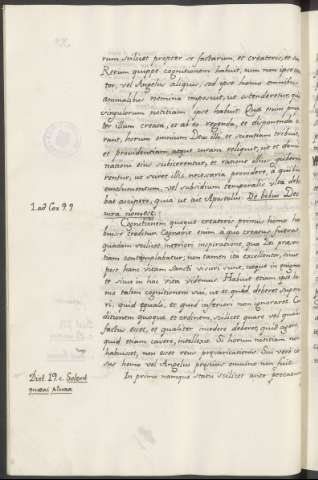 rum scilicet propter se factarum, et creatoris, et sui
Rerum quippe cognitionem habuit, cum non ipse crea
tor, vel Angelus aliquis, sed ipse homo omnibus
animalibus nomina imposuit, ut ostenderetur, quod
singulorum notitiam ipse habuit. Quae enim prop
ter illum creata, et ab eo regenda, et disponenda e
rant, horum omnium Deus illi et scientiam tribuit,
et providentiam atque curam reliquit, ut et domi
nationi eius subiicerentur, et ratione illius guberna
rentur, ut sciret illis necessaria providere, a quibus
emolumentum, vel subsidium temporalis vitae debe
bat accipere, quia ut ait Apostolus De bobus Deo
cura non est:
1. ad Cor. 9. 9
Cognitionem quoque creatoris primus homo ha
buisse traditur. Cognovit enim a quo creatus fuerat
quadam scilicet interiori inspiratione, qua Dei praesen
tiam contemplabatur, non tamen ita excellenter, sicut
post hanc vitam Sancti visuri sunt, neque in enigma
te sicut in hac vita videmus. Habuit etiam sui ho
mo talem cognitionem sui, ut et quid deberet superi
ori, quid equali, et quid inferiori non ignoraret. Con
ditionem quoque et ordinem, scilicet quare vel qualis
factus esset, et qualiter incedere deberet, quid agere,
quid etiam cavere, intellexit. Si horum notitiam non
habuisset, non esset reus praevaricationis. Sui vero ca
sus homo vel Angelus praescius omnino non fuit.
Dist. 19. c. Solent
quaeri plura
In primo namque statu scilicet ante peccatum